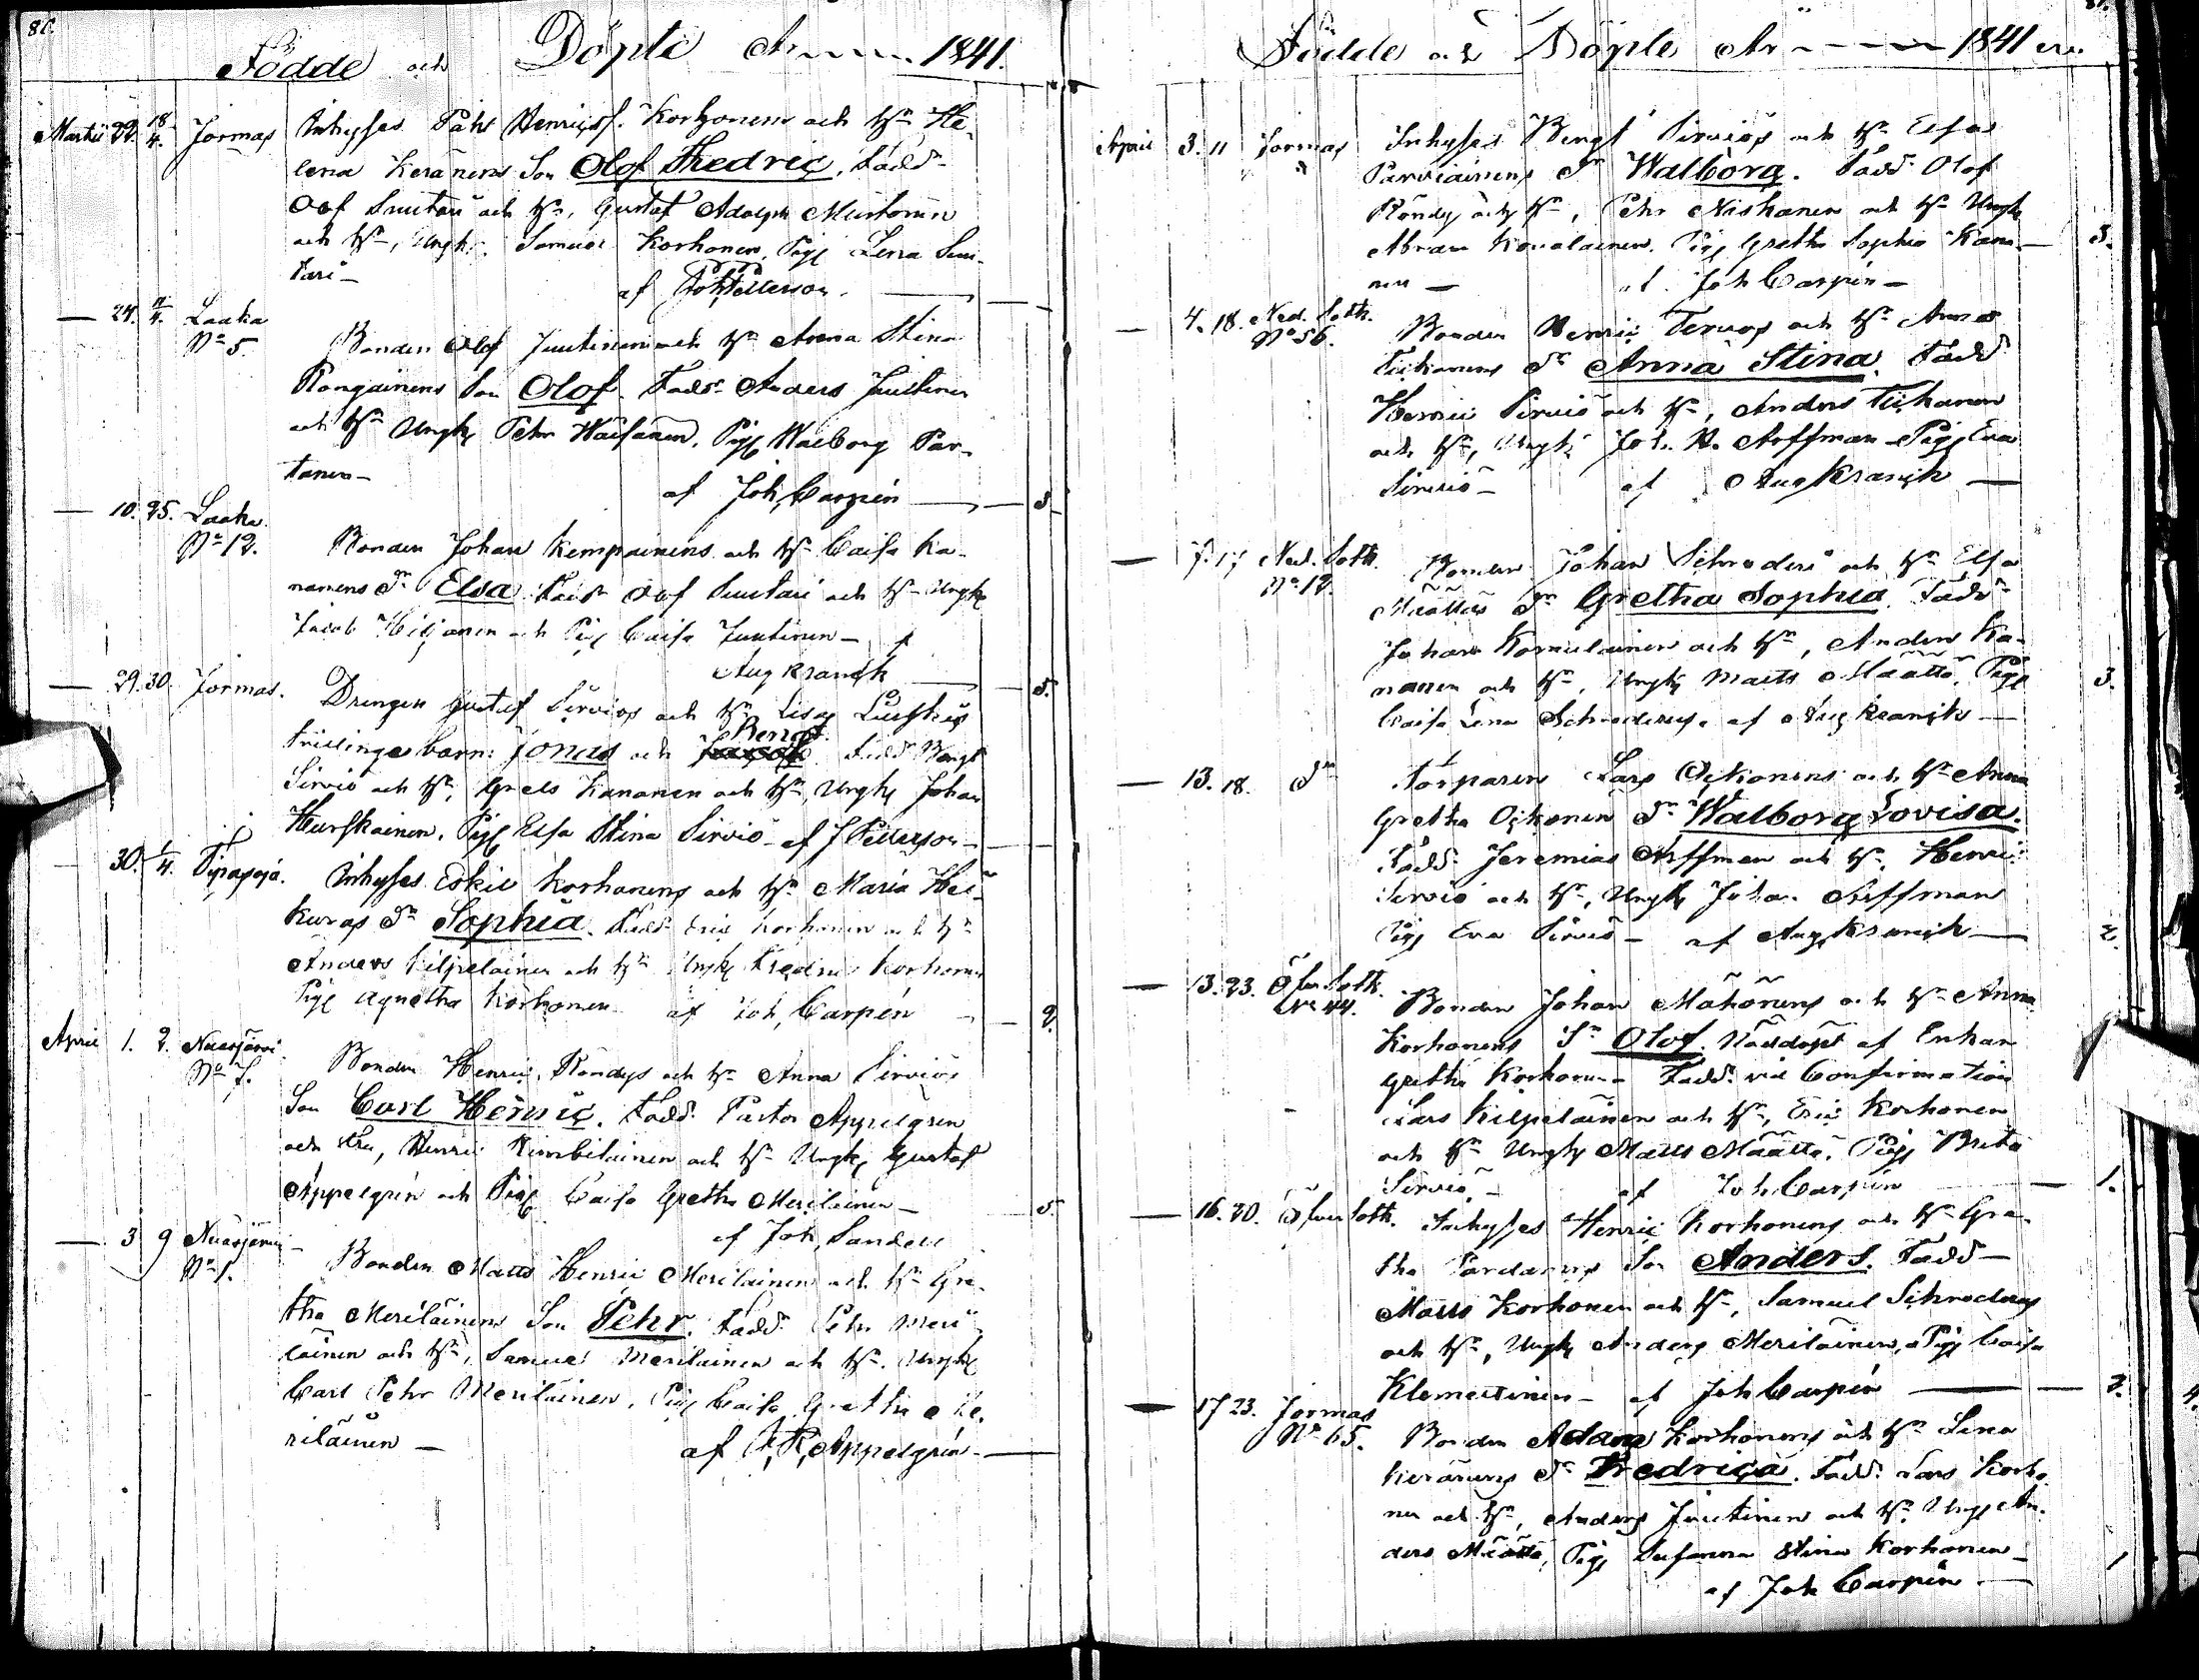 Födde och Döpte År 1841.
Martii 22. 18/4. Jormas Inhyses Påhl Henricss. Korhonens och H:n He-
lena Keränens Son Olof Fredric. Fadd.
Olof Suutari och H:n, Gustaf Adolph Mustonen
och H:n, Ungk. Samuel Korhonen, Pig. Lena Suu-
tari –
af Petterson.
— 24. 11/4. Laaka
N:o 5. Bonden Olof Juutinens och H:n Anna Stina
Rongainens Son Olof. Fadd. Anders Juutinen
och H:n Ungk. Pehr Wäisänen, Pig. Walborg Par-
tanen –
af Joh. Carpén
— 10. 25. Laaka
N:o 12. Bonden Johan Kempainens och H:n Caisa Ka-
nanens D:r Elsa. Fadd. Olof Suutari och H:n Ungk.
Jacob Hiljanen och Pig. Caisa Juutinen – af
Aug Kranck
5.
— 29. 30. Jormas. Drengen Gustaf Sirviös och H:n Lisa
Bengt
trillinge barn: Jonas och Jacob. Fadd. Bengt
Sirviö och H:n, Grels Kananen och H:n, Ungk. Johan
Hurskainen, Pig. Elsa Stina Sirviö – af J Petterson –
— 30. 1/4. Inhyses Eskil Korhonens och H:n Maria Hei-
kuras D:r Sophia. Fadd. Eric Korhonen och H:n
Anders Kilpeläinen och H:n Ungk. Fredric Korhonen
Pig. Agnetha Korhonen af Joh. Carpén
2.
April 1. 2. Nuasjärvi
N:o 7. Bonden Henric Röndys och H:n Anna Sirviös
Son Carl Henric. Fadd. Pastor Appelgren
och Fru, Henric Kimbilainen och H:n Ungk. Gustaf
Appelgrén och Pig. Caisa Gretha Meriläinen –
5.
af Joh. Sandell
— 3 9 Nuasjärvi
N:o 1. Bonden Matts Henric Meriläinen och H:n Gre-
tha Meriläinens Son Pehr. Fadd. Pehr Meri-
läinen och H:n, Samuel Meriläinen och H:n. Ungk.
Carl Pehr Meriläinen, Pig. Caisa Gretha Me-
riläinen –
af Appelgrén –
Födde och Döpte År 1841
April 3. 11 Jormas Inhyses Bengt Sirviös och H:n Elsas
Parviainens D:r Walborg. Fadd. Olof
Röndy och H:n, Pehr Niskanen och H:n Ungk.
Abram Kovalainen, Pig. Gretha Sophia Kana-
3.
nen – af Joh Carpén –
— 4. 18. Ned. Sotk.
N:o 56. Bonden Henric Tervos och H:n Anna
Tiikanens D:r Anna Stina. Fadd.
Henric Sirviö och H:n, Anders Tiikanen
och H:n, Ungk. Joh. H. Arffman Pig. Eva
Sirviö – af Aug Kranck —
— 7. 17 Ned. Sotk.
N:o 12. Bonden Johan Schroderi och H:n Elsa
Määttäs D:r Gretha Sophia. Fadd.
Johan Komulainen och H:n, Anders Ka-
nanen och H:n, Ungk. Matts Määttä, Pig.
3.
Caisa Lena Schroderus. af Aug Kranck —
— 13. 18. D:o Torparen Lars Oikonens och H:n Anna
Gretha Oikonen D:r Walborg Lovisa.
Fadd. Jeremias Arffman och H:n, Henric
Sirviö och H:n, Ungk. Johan Arffman
Pig. Eva Sirviö – af Aug. Kranck —
2.
— 13. 23. Öfver Sotk.
N:o 44. Bonden Johan Mähönens och H:n Anna
Korhonens S:n Olof. Nöddöpt af Enkan
Gretha Korhonen – Fadd. vid Confirmation
Lars Kilpeläinen och H:n, Eric Korhonen
och H:n Ungk. Matts Määttä, Pig. Brita
Sirviö – af Joh. Carpén
1.
— 16. 20. Öfver Sotk. Inhyses Henric Korhonens och H:n Gre-
tha Son Anders. Fadd –
Matts Korhonen och H:n, Samuel Schroderus
och H:n, Ungk. Anders Meriläinen, Pig. Caisa
Klemettinen – af Joh Carpén
3.
— 17 23. Jormas
N:o 65. Bonden Adam Korhonens och H:n Lena
Keränens D:r Fredrica. Fadd. Lars Korho-
nen och H:n, Anders Juutinen och H:n Ungk. An-
ders Määttä, Pig. Susanna Stina Korhonen –
1
af Joh Carpén –